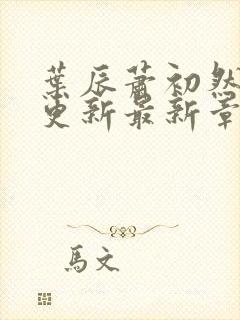 葉辰蕭初然
更新最新章
馬文